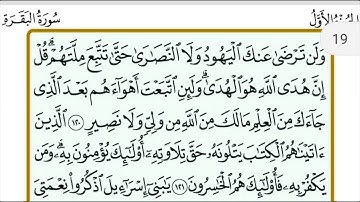 الجزء الأول
سورة البقرة
19
ولن ترضى عنك اليهود ولا النصارى حتى تتبع ملتهم قل
إن هدى الله هو الهدى ولئن اتبعت أهواءهم بعد الذي
جاءك من العلم ما لك من الله من ولي ولا نصير ١٢٠ الذين
ءاتيناهم الكتاب يتلونه حق تلاوته أولئك يؤمنون به ومن
يكفر به فأولئك هم الخاسرون ١٢١ يبني إسراءيل اذكروا نعمتي